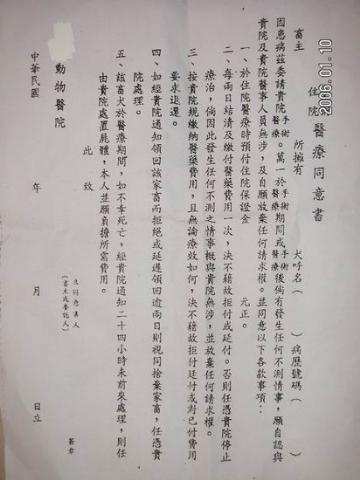 住院醫療同意書
畜主　　　所擁有　　　犬呼名（　　）病歷號碼（　　）
因患病茲委請貴院手術醫療。萬一於手術醫療期間或手術醫療後倘有發生任何不測情事，願自認與
貴院及貴院醫事人員無涉，及自願放棄任何請求權。並同意以下各款事項：
一、於住院醫療時預付住院保證金　　　元正。
二、每兩日結清及繳付醫藥費用一次，決不藉故拒付或延付。否則任憑貴院停止
療治，倘因此發生任何不測之情事概與貴院無涉，並放棄任何請求權。
三、按貴院規繳納醫藥費用，且無論療效如何，決不藉故拒付延付或對已付費用
要求退還。
四、如經貴院通知領回該家畜而拒絕或延遲領回逾兩日則視同捨棄家畜，任憑貴
院處理。
五、該畜犬於醫療期間，如不幸死亡，經貴院通知二十四小時未前來處理，則任
由貴院處置屍體，本人並願負擔所需費用。
此　致
動物醫院
立同意書人
（畜主或委託人）
簽章
中華民國　　年　　月　　日立
2006.01.10